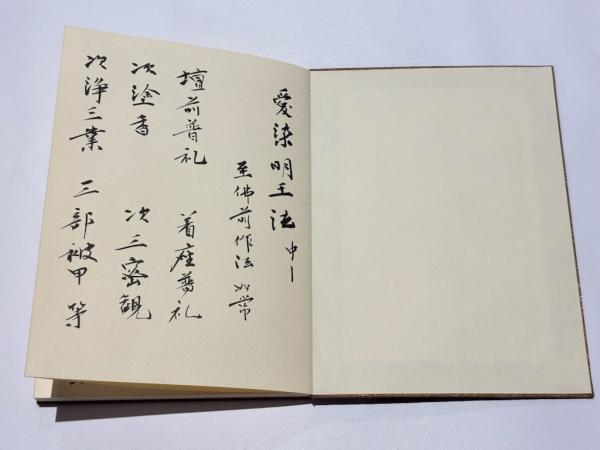 愛染明王法 中一
至佛前作法如常
壇前普礼 着座普礼
次塗香 次三密観
次浄三業 三部被甲 等